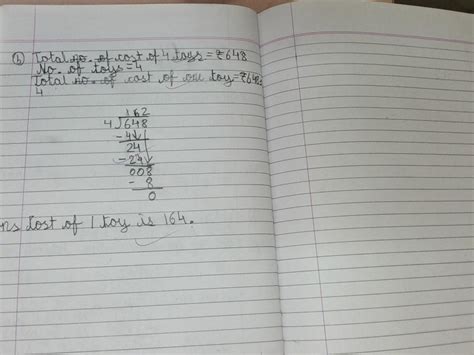 (b) Total no. of cost of 4 toys = ₹648
No. of toys = 4
Total no. of cost of one toy = ₹648
4
162
4)648
-4
24
-24
008
- 8
0
ns Cost of 1 toy is 164.